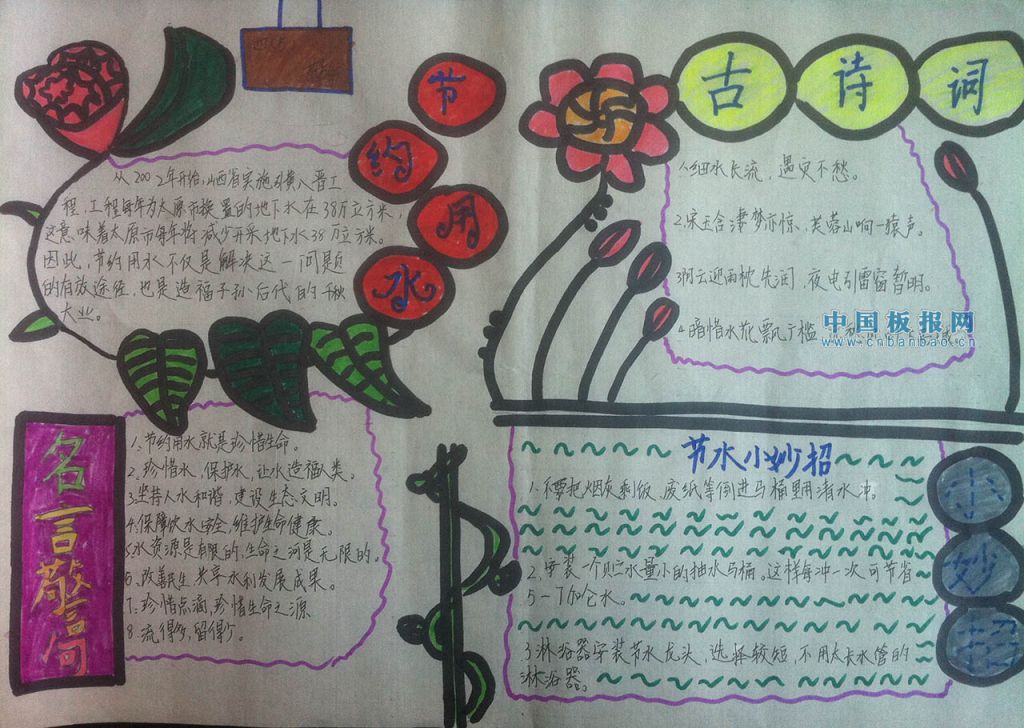 节约用水
从2002年开始,山西省实施引黄入晋工
程,工程每年为太原市换置的地下水在38万立方米,
这意味着太原市每年将减少开采地下水38万立方米。
因此,节约用水不仅是解决这一问题
的有效途径,也是造福子孙后代的千秋
大业。
古诗词
1.细水长流,遇灾不愁。
2.宋玉含凄梦亦惊,芙蓉山响一猿声。
3.阴云迎雨枕先润,夜电引雷窗暂明。
4.暗惜水花飘广槛
中国板报网
www.cnbanbao.cn
名言警句
1.节约用水就是珍惜生命。
2.珍惜水、保护水,让水造福人类。
3.坚持人水和谐,建设生态文明。
4.保障饮水安全,维护生命健康。
5.水资源是有限的,生命之河是无限的。
6.改善民生,共享水利发展成果。
7.珍惜点滴,珍惜生命之源
8.流得多,留得少。
节水小妙招
1.不要把烟灰、剩饭、废纸等倒进马桶里用清水冲。
2.安装一个贮水量小的抽水马桶。这样每冲一次可节省
5-7加仑水。
3.淋浴器安装节水龙头,选择较短,不用太长水管的
淋浴器。
小妙招